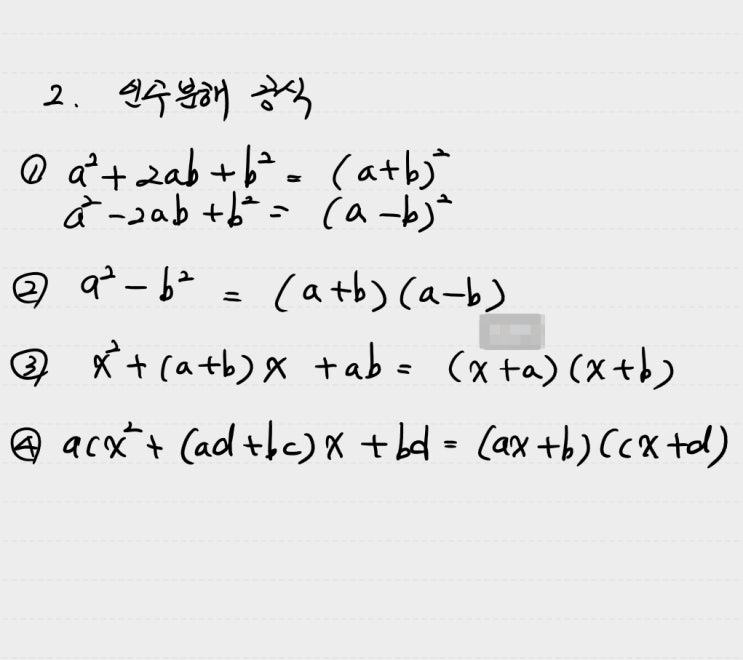 2. 인수분해 공식
① a²+2ab+b²= (a+b)²
a²-2ab+b²= (a-b)²
② a²-b² = (a+b)(a-b)
③ x²+(a+b)x +ab= (x+a)(x+b)
④ acx²+(ad+bc)x+bd=(ax+b)(cx+d)